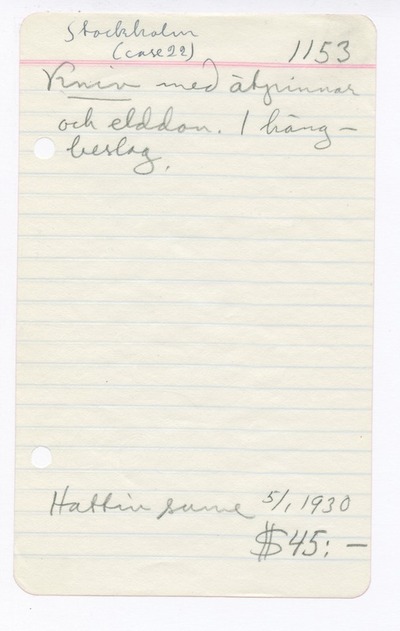 Stockholm
(case 22) 1153
Kniv med ätpinnar
och elddon. 1 häng-
beslag.
Hattin sume 5/1 1930
$45:-